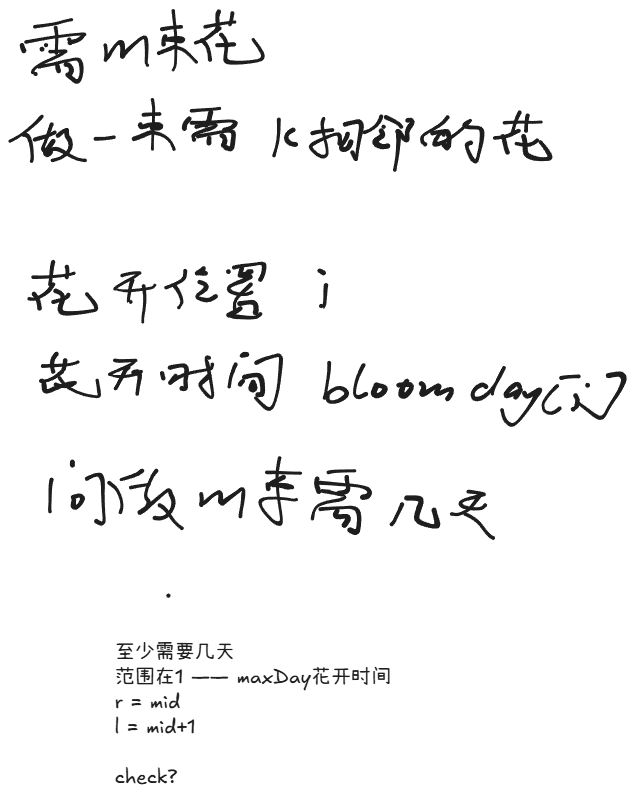 需m束花
做一束需 k相邻的花
花开位置 i
花开时间 bloomday[i]
问做m束需几天
至少需要几天
范围在1 —— maxDay花开时间
r = mid
l = mid+1
check?